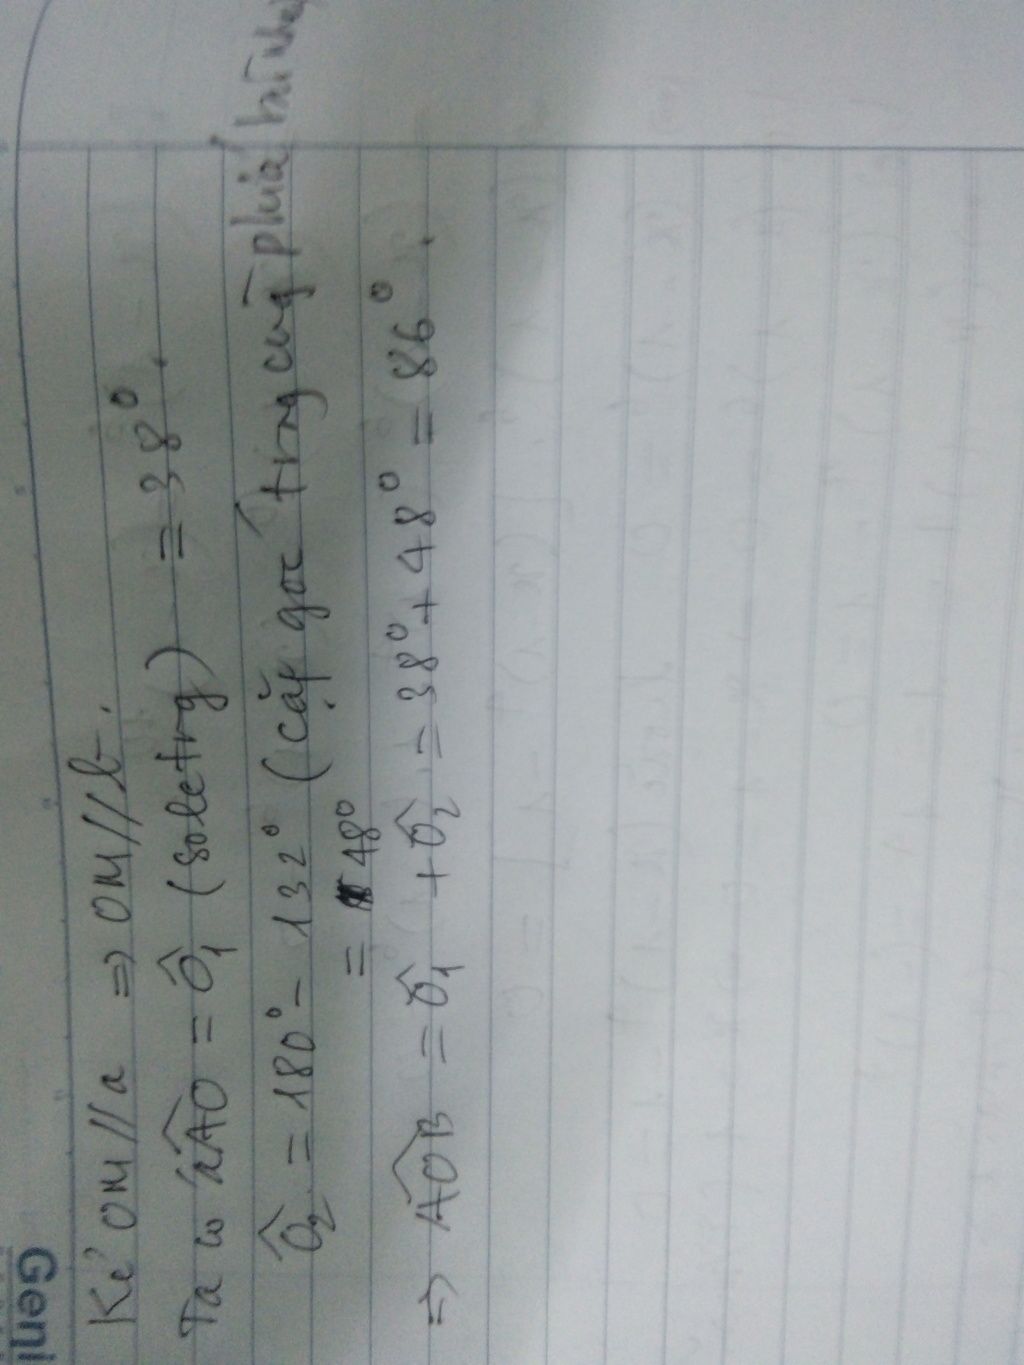 Geni
Kẻ OM//a ⇒ OM//b.
Ta có aAO = Ô1 (soletrg) = 38°.
Ô2 = 180° - 132° (cặp góc trong cùg phía bù nhau
= 48°
⇒ AOB = Ô1 + Ô2 = 38° + 48° = 86°.